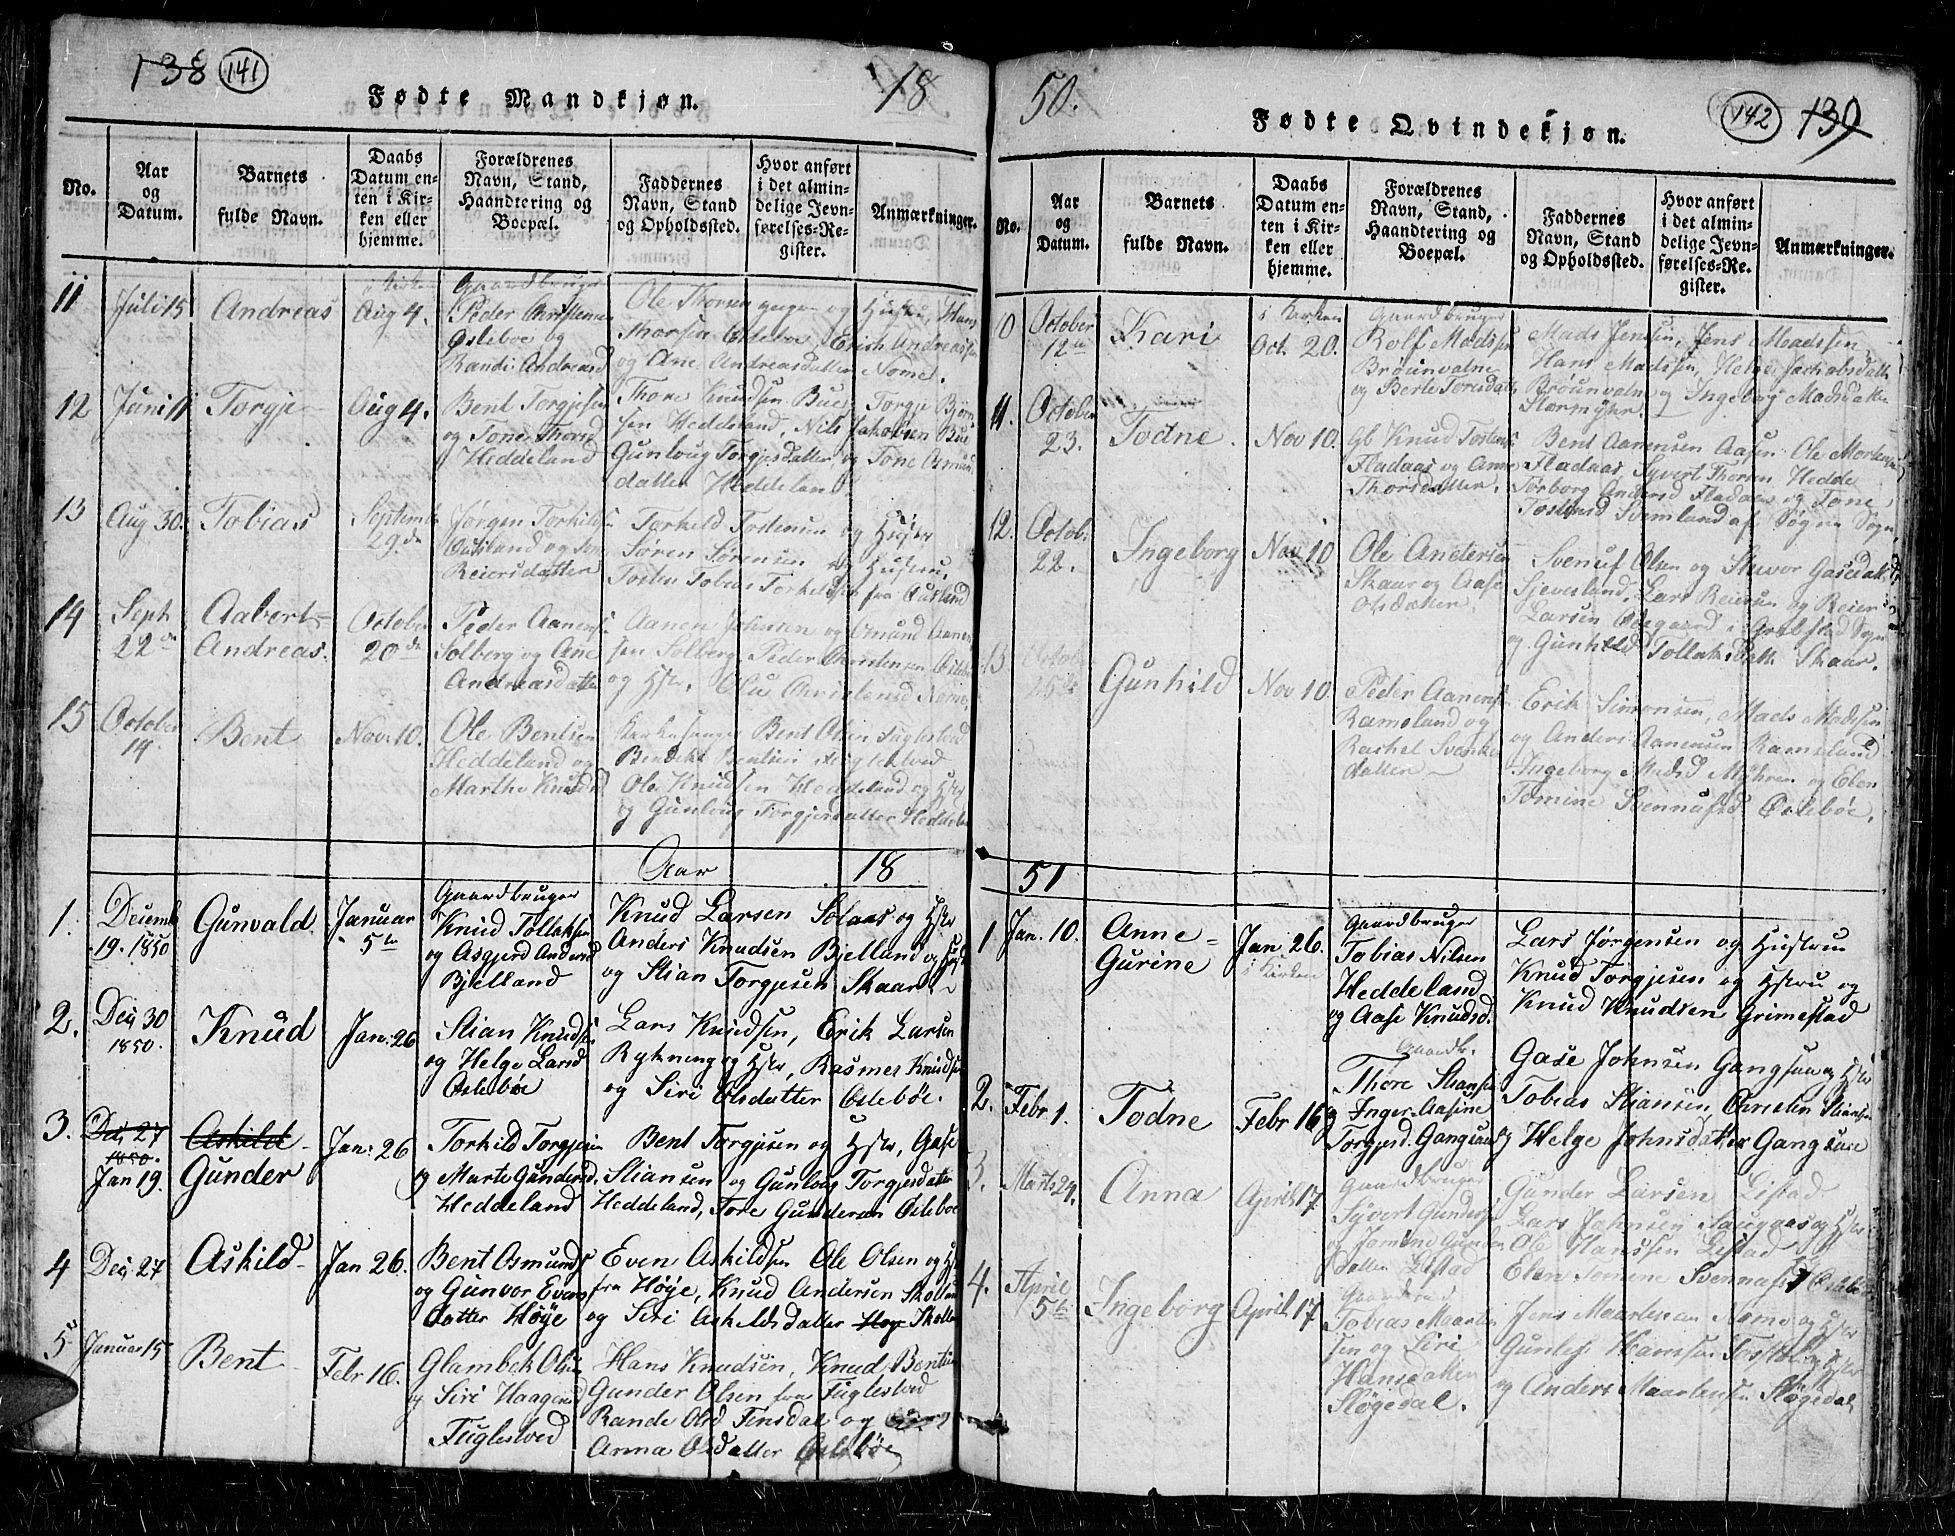 138 (141)
Fødte Mandkjøn. 18
No. Aar og Datum. Barnets fulde Navn. Daabs Datum enten i Kirken eller hjemme. Forældrenes Navn, Stand, Haandtering og Boepæl. Faddernes Navn, Stand og Opholdssted. Hvor anført i det almindelige Jevnførelses-Register. Anmærkninger.
11 Juli 15 Andreas Aug 4.
Gaardbruger
Peder Christensen
Osleboe og
Randi Andreasd
Ole Thorsen og Hustru, Hans
Thorsen Osleboe Erich Andreassen
og Ane Andreasdatter Nome.
12 Juni 11 Torgje Aug 4.
Bent Torgjesen
og Tone Thorsd
Heddeland
Thore Knudsen Bue, Torgje Bjørn
sen Heddeland, Nils Jakobsen Bue
Gunloug Torgjesdatter og Tone Osmun
datter Heddeland
13 Aug 30. Tobias Septemb 29de
Jørgen Torkilds
Ausland og
Reiersdatter
Torkeld Tostensen og Hustru
Søren Sørensen og Hustru.
Tosten Tobias Torkildsen fra Ausland
14 Sept 22de Aabert= Andreas. October 20de
Peder Aanens
Solberg og Ane
Andreasdatter
Aanen Johnsen og Omund Aanen
sen Solberg Peder Christensen Osleboe
og Hstr. Olu Christensd Nome.
15 October 14. Bent Nov. 10.
Ole Bentsen
Heddeland og
Marthe Knudsd
Kirkesanger Bent Olsen Fuglestved
Bendikt Bentsen Fuglestved
Ole Knudsen Heddeland og Hstr
og Gunloug Torgjersdatter Heddeland
Aar 18
1. Decemb 19. 1850 Gunvald Januar 5te
Gaardbruger
Knud Tollaksen
og Asgjerd Andersd
Bjelland
Knud Larsen Solaas og Hstr
Anders Knudsen Bjelland og Hstr
og Stian Torgjesen Skaar
2. Dec 30 1850. Knud Jan. 26
Stian Knuds
og Helge Larsd
Oslebøe
Lars Knudsen, Erik Larsen
Rykning og Hstr, Rasmus Knudsen
og Siri Olsdatter Oslebøe.
3. Dec 27 1850. Jan 19. Askild Gunder Jan. 26
Torkild Torgjesen
og Marte Gundersd.
Heddeland
Bent Torgjesen og Hstr, Gase
Stiansen og Gunloug Torgjesdatter
Heddeland, Tore Gundersen Oslebøe
4 Dec 27 Askild Jan 26.
Bent Osmunds
og Gunvor Evens
datter Høije
Even Askildsen Ole Olsen og Hst
fra Høije, Knud Andersen Skollan
og Siri Askildsdatter Høye Skollan
5 Januar 15 Bent Febr 16.
Glambek Olsen
og Siri Haagensd
Fuglestved
Hans Knudsen, Knud Bentsen
Gunder Olsen fra Fuglestved
Rande Olsd Finsdal og
Anna Olsdatter Oslebøe
50. (142) 139
Fødte Qvindekjøn.
No. Aar og Datum. Barnets fulde Navn. Daabs Datum enten i Kirken eller hjemme. Forældrenes Navn, Stand, Haandtering og Boepæl. Faddernes Navn, Stand og Opholdssted. Hvor anført i det almindelige Jevnførelses-Register. Anmærkninger.
10 October 12te Kari i Kirken Oct. 20.
Gaardbruger
Rolf Madsen
Brøunvalne
og Berte Torisdatt
Mads Jensen, Jens Madssen
Hans Madssen, Helge Jachobsdatter
Brøunvaln og Ingeborg Madsdatter
Stormyhr.
11. October 23. Todne. Nov 10.
Gb Knud Tostens
Fladaas og Anne
Thorsdatter.
Bent Aanensen Aasen Ole Mortensen
Fladaas Syvert Thorsen Hedde
Torborg Andersd Fladaas og Tone
Tostensd Svemland af Søgne Sogn.
12. Octob. 22. Ingeborg Nov. 10
Ole Andersen
Skaar og Aase
Olsdatter.
Svenuf Olsen og Skevor Gasedatt
Sjevesland, Lars Reiersen og Reier
Larsen Ougaard i Grebstad Sogn
og Gunhild Tollaksdatt Skaar.
13 October 25de Gunhild Nov 10.
Peder Aanens
Rameland og
Rachel Svenke
datter
Erik Simonsen, Mads Madssen
og Anders Aanensen Rameland
Ingeborg Madsd Myhren og Elen
Tomine Svennufsd Oslebøe.
51
1 Jan. 10. Anne= Gurine Jan. 26. i Kirken
Gaardbruger
Tobias Nilsen
Heddeland
og Aase Knudsd.
Lars Jørgensen og Hustrue
Knud Torgjesen og Hstru og
Knud Knudsen Grimestad
2. Febr 1. Todne Febr 16
Gaardb.
Thore Stiansen
Inger Aasine
Torgjersd. Gangsaas
Gase Johnsen Gangsaas og Hstr
Tobias Stiansen, Christen Stiansen
og Helge Johnsdatter Gangsaas
3. Marts 24. Anna April 17
Gaardbruger
Syvert Gunders
og Jomine Gunder
datter Leistad
Gunder Larsen Leistad
Lars Johnsen Haugaas og Hstr
Ole Hanssen Leistad
Elen Tomine Svennufsd Oslebøe
4. April 5te Ingeborg April 17
Gaardbrud
Tobias Maarten
sen og Siri
Hansdatter
Sløgedal.
Jens Maartensen Nome og Hstr
Gunlef Hansen Tostøl og Hstr
og Anders Maartensen Sløgedal